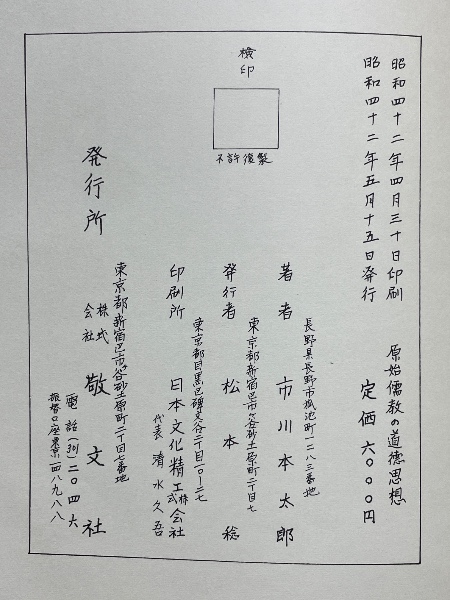 昭和四十二年四月三十日印刷
昭和四十二年五月十五日発行
原始儒教の道徳思想
定価六〇〇〇円
検印
不許複製
長野県長野市狐池町一二八三番地
著者 市川本太郎
東京都新宿区市ヶ谷砂土原町二丁目七
発行者 松本 稔
東京都目黒区碑文谷二丁目一〇ー二七
印刷所 日本文化精工株式会社
代表 清水久吾
東京都新宿区市ヶ谷砂土原町二丁目七番地
発行所 株式会社 敬文社
電話(311)二〇四六
振替口座東京一四八九八八